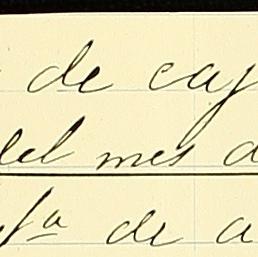 de caj
del mes d
fª de a